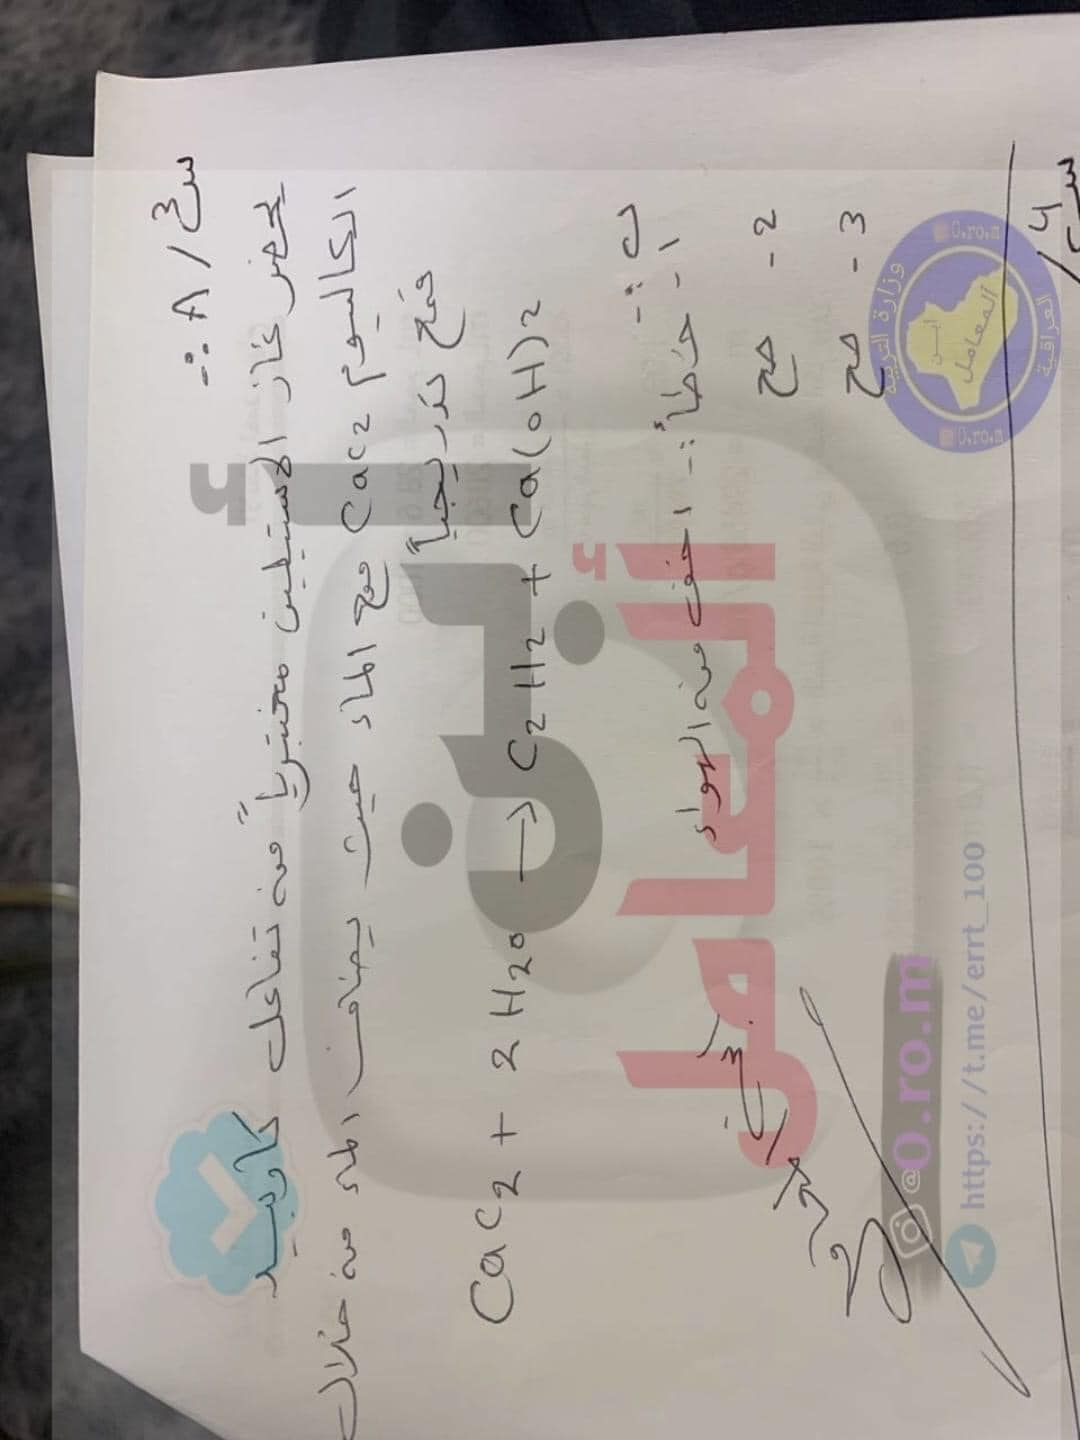 س3/A :-
يحضر غاز الاستيلين مختبرياً من تفاعل كاربيد
الكاليسوم CaC2 مع الماء حيث يضاف الماء من خلال
قمع تدريجياً
CaC2 + 2H2O → C2H2 + Ca(OH)2
ب :-
1- خطأ :- اخف من الهواء
2- صح
3- صح
س4/
أبن المعامل
وزارة التربية
العراقية
أبن
المعامل
O.ro.m
O.ro.m
@O.ro.m
https://t.me/errt_100